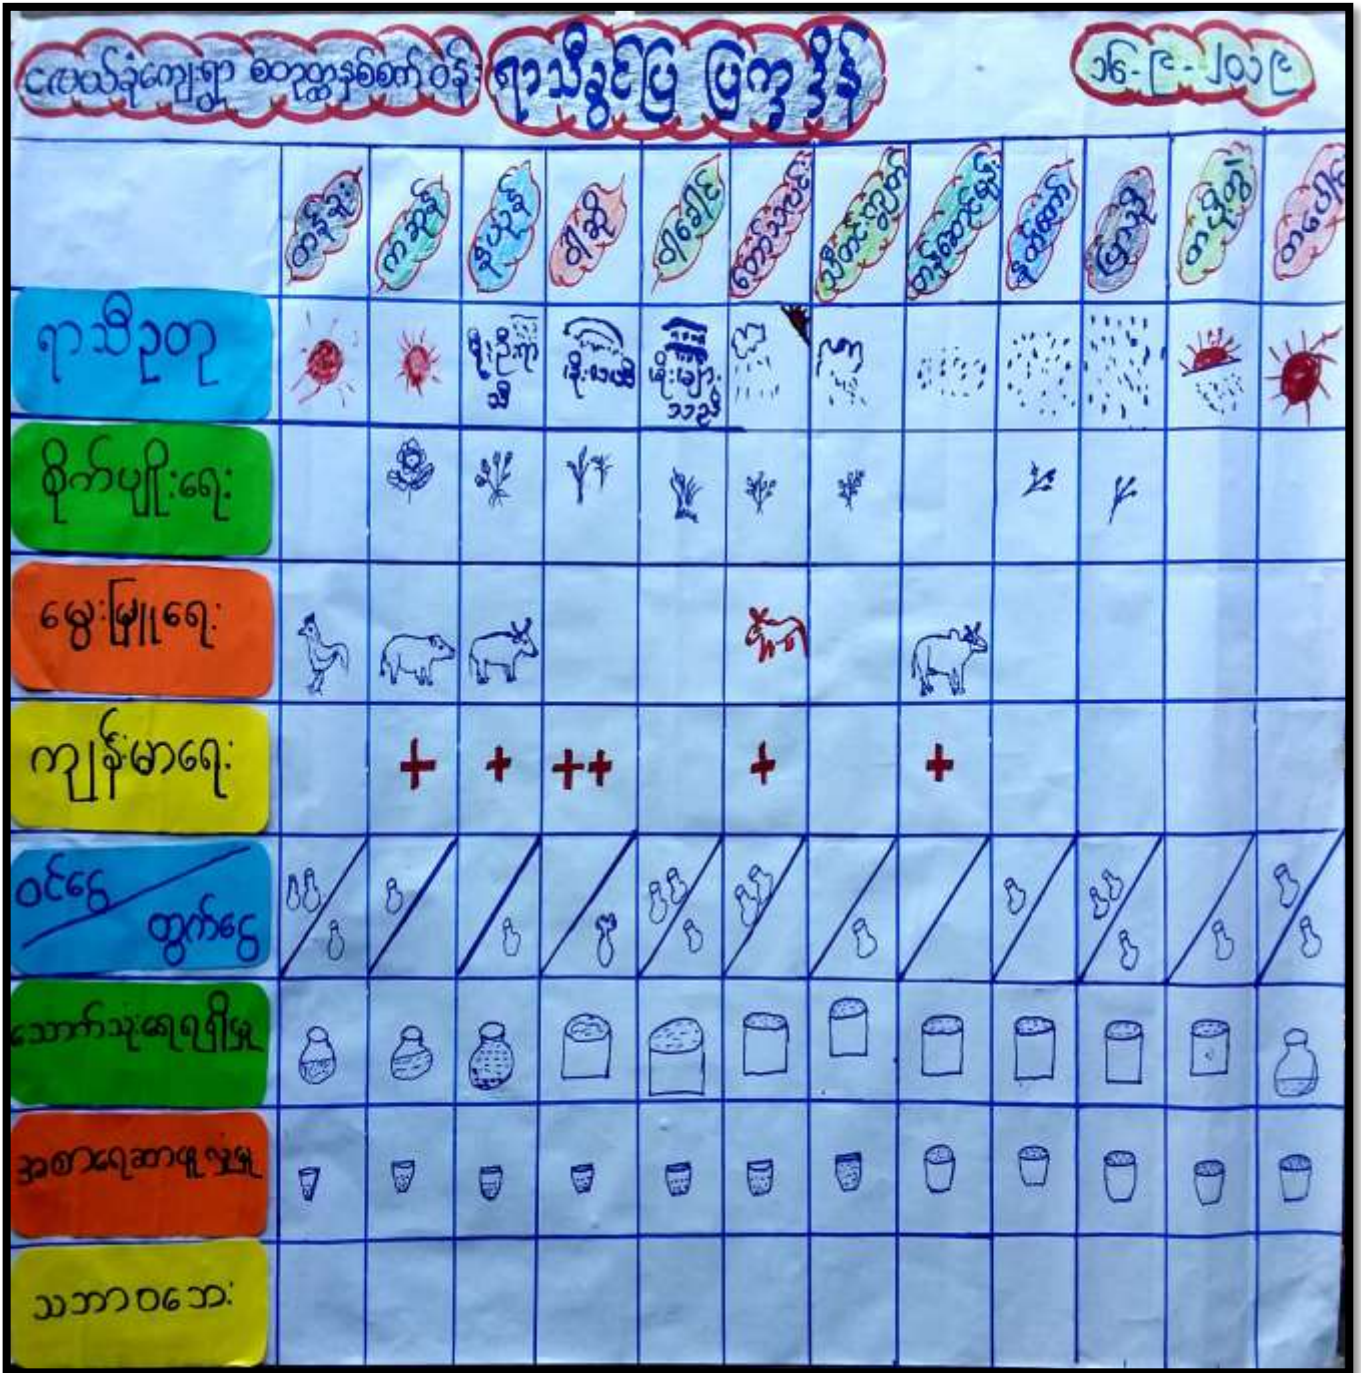 ငလယ်ခုံကျေးရွာ စတုတ္ထနှစ်စက်ဝန်း ရာသီခွင်ပြ ပြက္ခဒိန် ၁၆-၉-၂၀၁၉
တန်ခူး ကဆုန် နယုန် ဝါဆို ဝါခေါင် တော်သလင်း သီတင်းကျွတ် တန်ဆောင်မုန်း နတ်တော် ပြာသို တပို့တွဲ တပေါင်း
ရာသီဥတု
မိုးဦးရာသီ
မိုးလယ်
မိုးများသည်
စိုက်ပျိုးရေး
မွေးမြူရေး
ကျန်းမာရေး
ဝင်ငွေ
ထွက်ငွေ
သောက်သုံးရေရရှိမှု
အစာရေစာဖူလုံမှု
သဘာဝဘေး